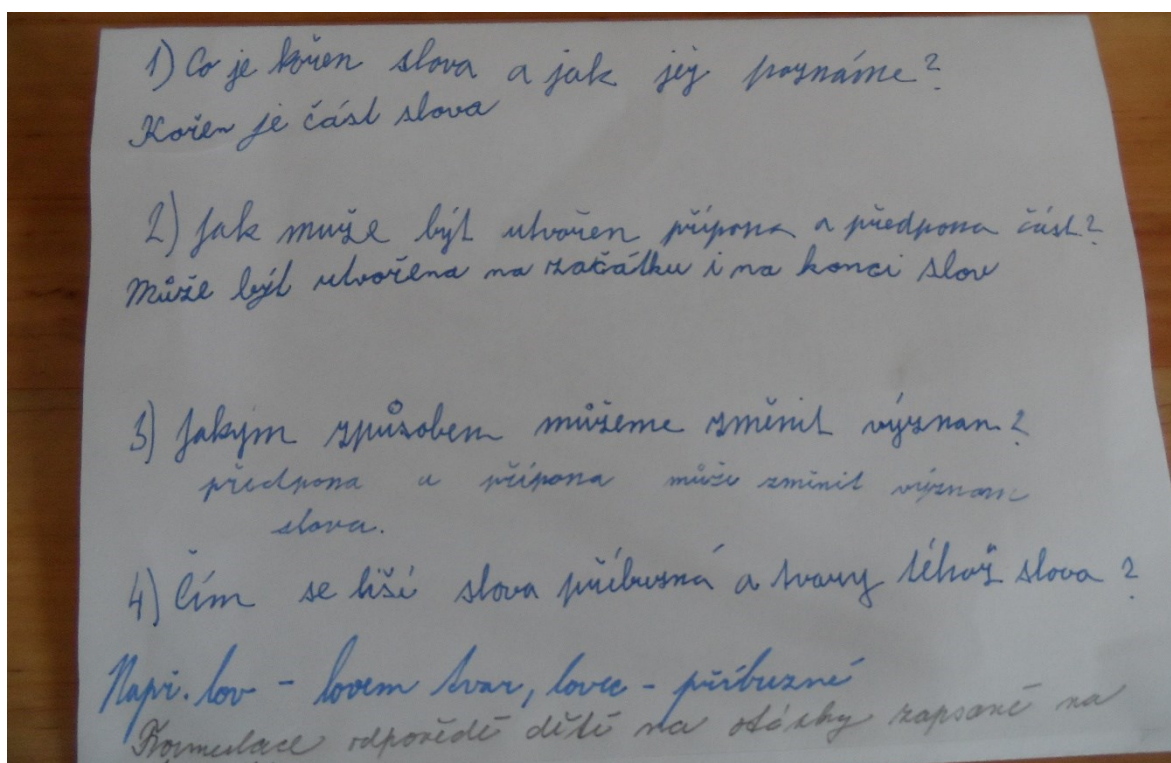 1) Co je kořen slova a jak jej poznáme?
Kořen je část slova
2) Jak muže být utvořen přípona a předpona část?
Může být utvořena na začátku i na konci slov
3) Jakým způsobem můžeme změnit význam?
předpona a přípona může změnit význam
slova.
4) Čím se liší slova příbuzná a tvary téhož slova?
Např. lov - lovem tvar, lovec - příbuzné
Formulace odpovědě dětě na otázky zapsané na